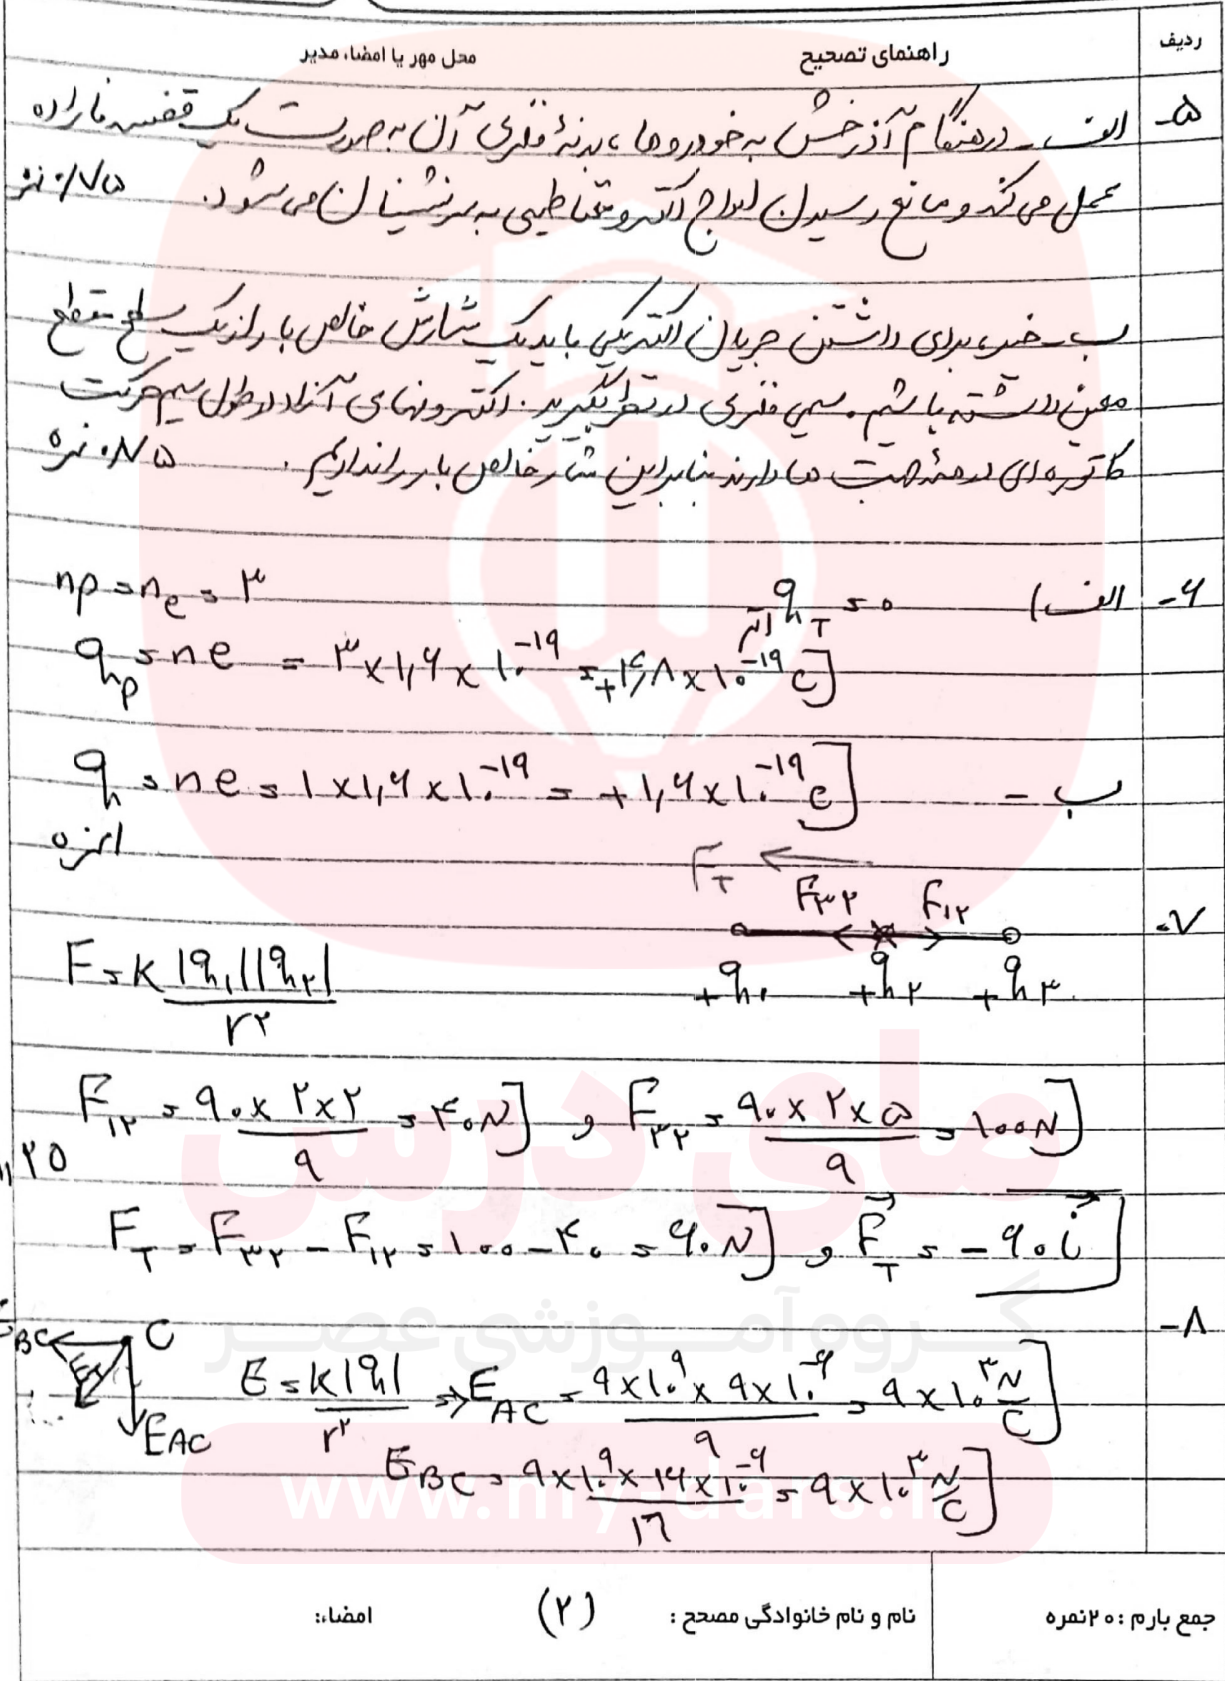 ردیف
راهنمای تصحیح
محل مهر یا امضاء مدیر
۵- الف - در هنگام آذرخش به خودروها، بدنهٔ فلزی آن به صورت یک قفس فاراده
عمل می‌کند و مانع رسیدن امواج الکترومغناطیسی به سرنشینان می‌شود. ۰/۷۵ نمره
ب - خیر، برای داشتن جریان الکتریکی باید یک شارش خالص بار از یک سطح مقطع
معین داشته باشیم. سیمی فلزی در نظر بگیرید. الکترونهای آزاد در طول سیم حرکت
کاتوره‌ای در همه جهت ها دارند بنابراین شار خالص بار را نداریم. ۰/۷۵ نمره
۶- الف) q_T اتم = ۰ np = n_e = ۳
q_p = ne = ۳ × ۱,۶ × ۱۰^-۱۹ = +۴,۸ × ۱۰^-۱۹ C]
ب - q = ne = ۱ × ۱,۶ × ۱۰^-۱۹ = +۱,۶ × ۱۰^-۱۹ C]
۱ نمره
F_T ←
۷- F_۳۲ F_۱۲
+q_۱ +q_۲ +q_۳
F = K |q_۱||q_۲| / r^۲
F_۱۲ = ۹۰ × ۲ × ۲ / ۹ = ۴۰ N] و F_۳۲ = ۹۰ × ۲ × ۵ / ۹ = ۱۰۰ N]
۲۵
F_T = F_۳۲ - F_۱۲ = ۱۰۰ - ۴۰ = ۶۰ N] و F_T = - ۶۰ i
۸-
BC C E_T E_AC
E = K|q| / r^۲ ⇒ E_AC = ۹ × ۱۰^۹ × ۹ × ۱۰^-۶ / ۹ = ۹ × ۱۰^۳ N/C]
E_BC = ۹ × ۱۰^۹ × ۱۶ × ۱۰^-۶ / ۱۶ = ۹ × ۱۰^۳ N/C]
مای درس
گروه آموزشی عصر
www.my-dars.ir
جمع بارم : ۲۰ نمره
نام و نام خانوادگی مصحح :
(۲)
امضاء: